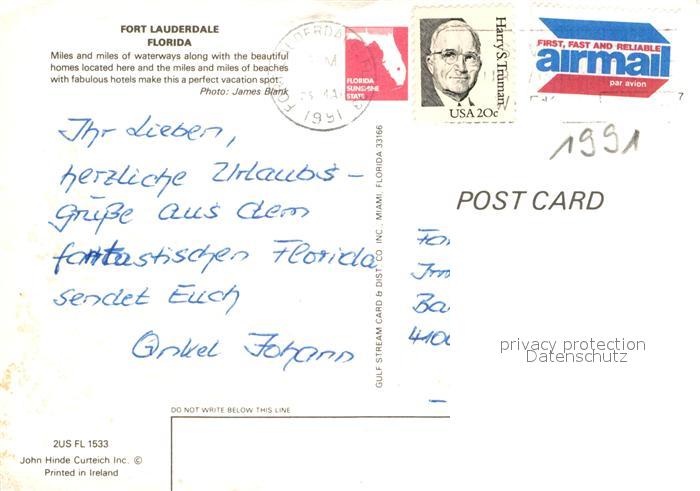 FORT LAUDERDALE
FLORIDA
Miles and miles of waterways along with the beautiful
homes located here and the miles and miles of beaches
with fabulous hotels make this a perfect vacation spot.
Photo: James Blank
FLORIDA
SUNSHINE
STATE
1991
Harry S. Truman
USA 20c
FIRST, FAST AND RELIABLE
airmail
par avion
7
1991
Ihr Lieben,
herzliche Urlaubs-
grüße aus dem
fantastischen Florida
sendet Euch
Onkel Johann
GULF STREAM CARD & DIST. CO. INC., MIAMI, FLORIDA 33166
POST CARD
privacy protection
Datenschutz
DO NOT WRITE BELOW THIS LINE
2US FL 1533
John Hinde Curteich Inc. ©
Printed in Ireland